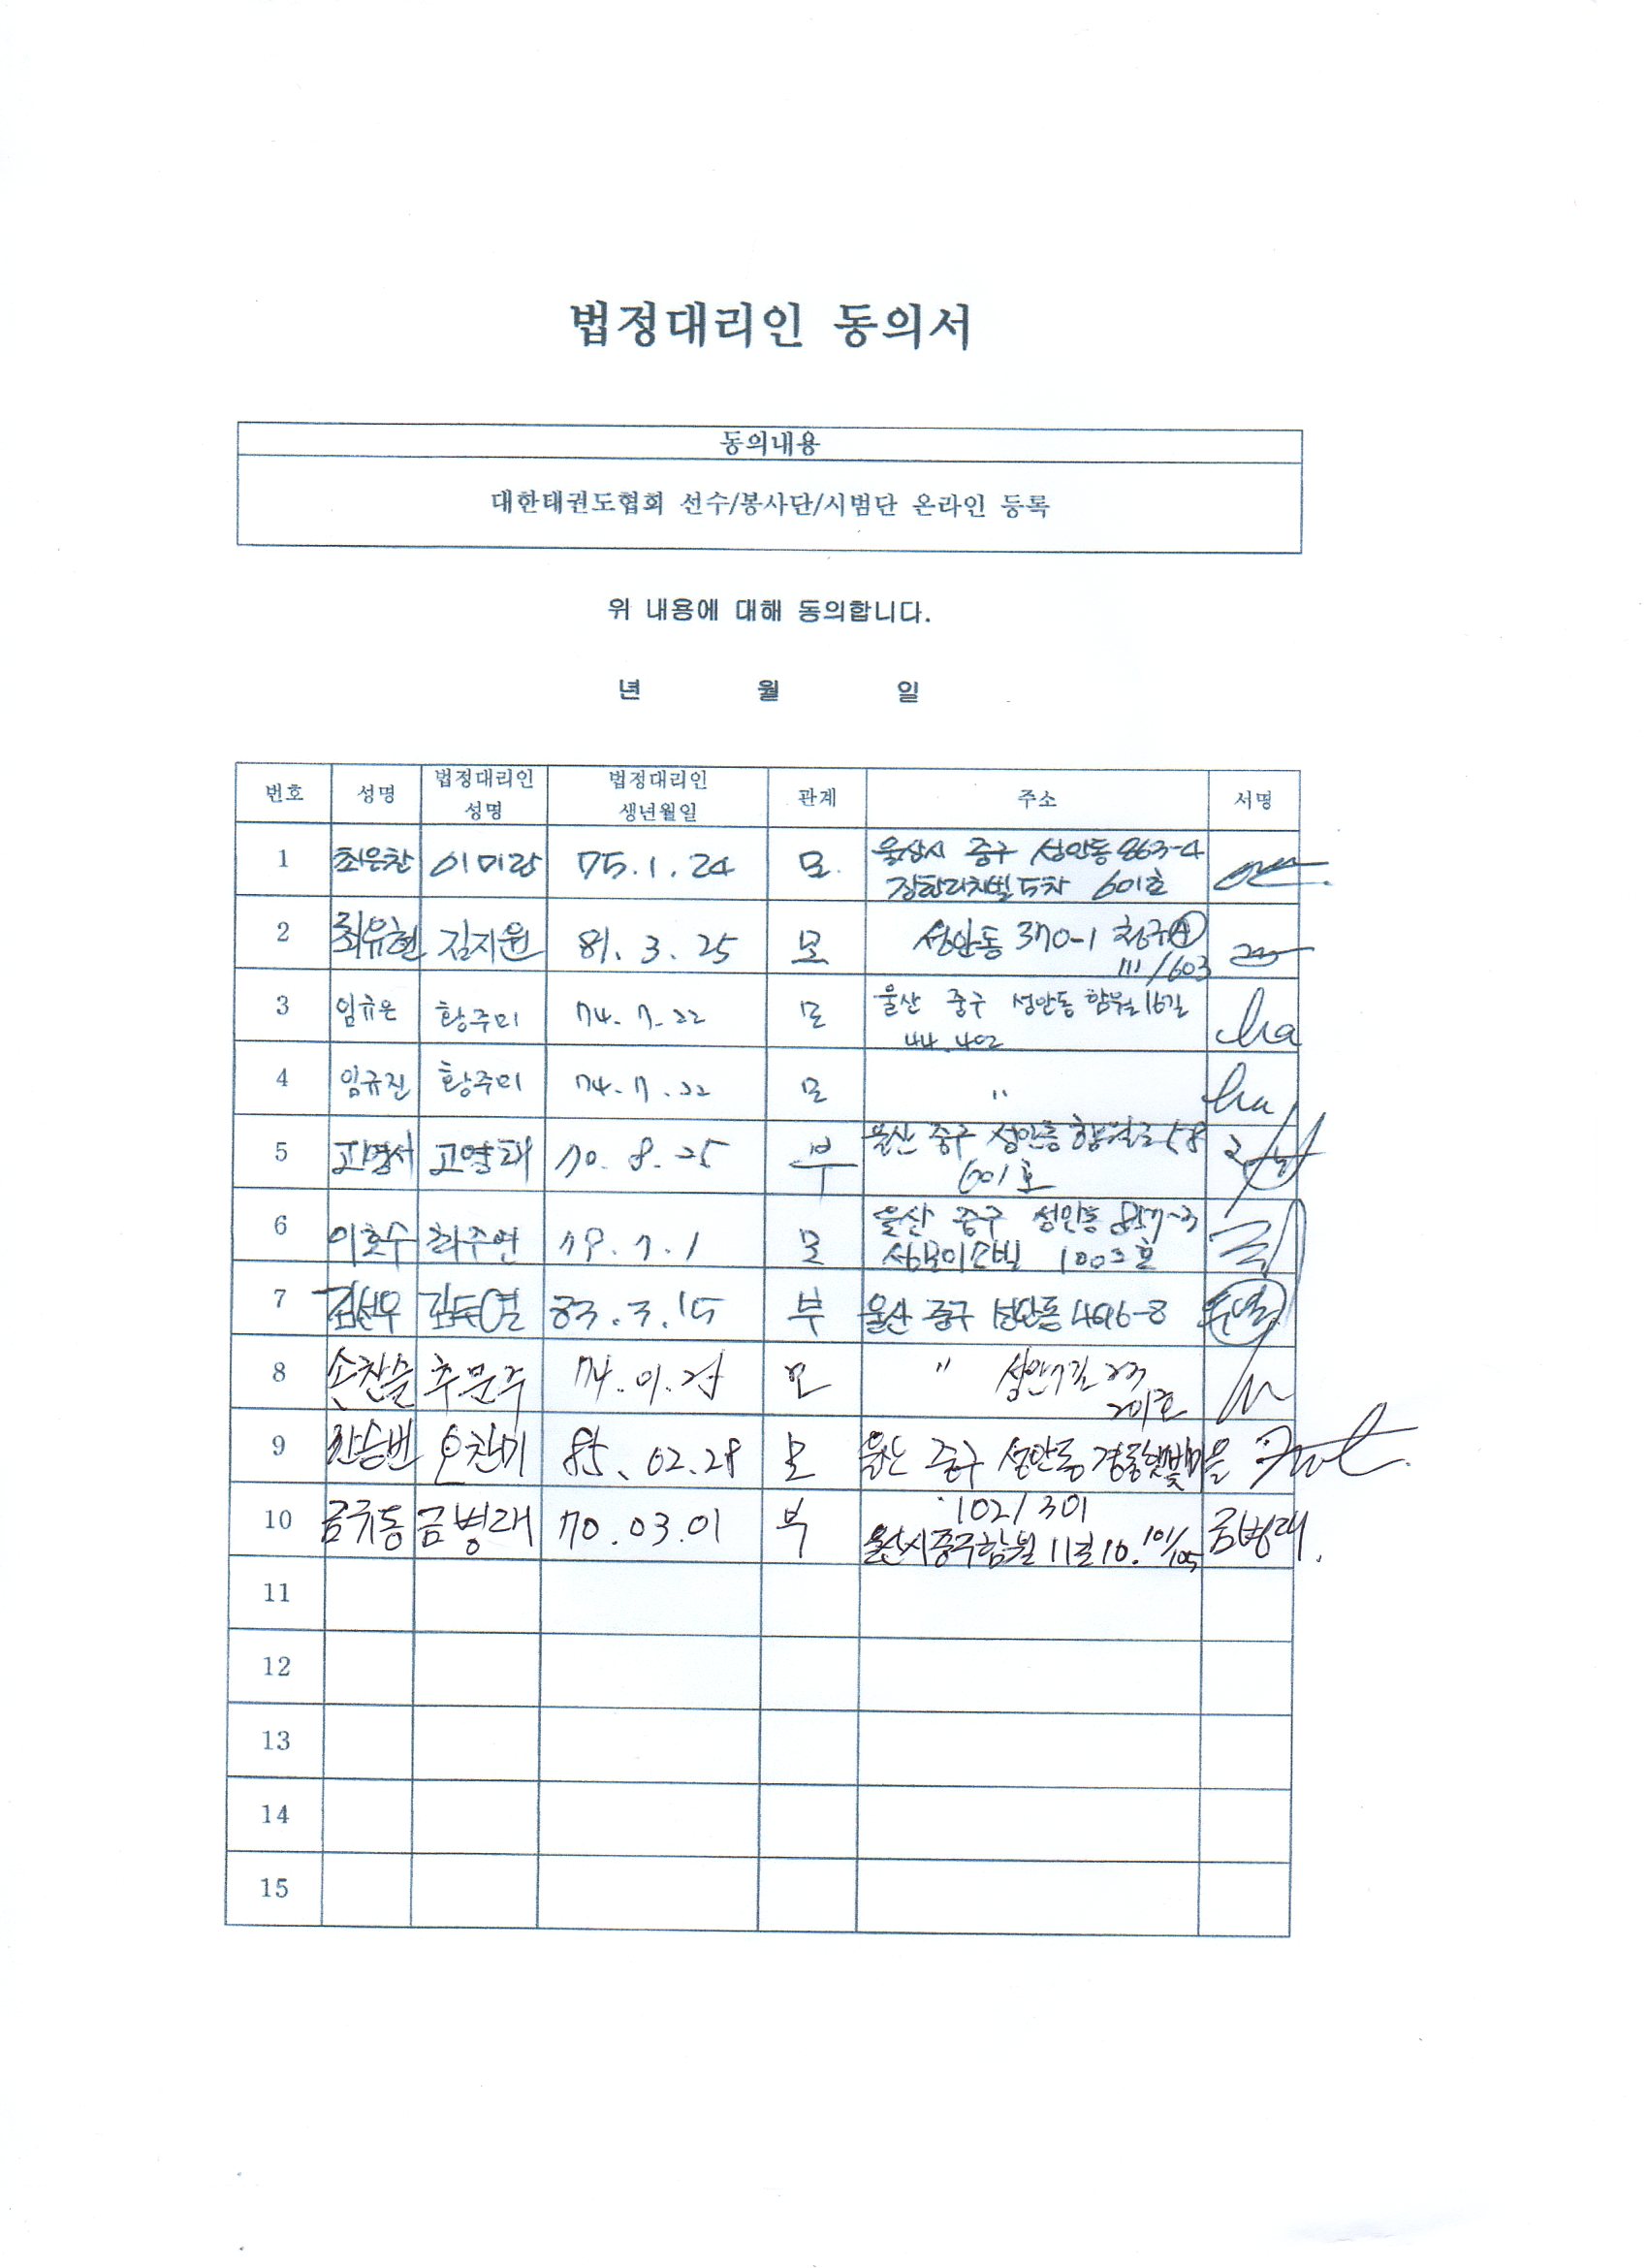 법정대리인 동의서
동의내용
대한태권도협회 선수/봉사단/시범단 온라인 등록
위 내용에 대해 동의합니다.
년 월 일
번호 성명 법정대리인 성명 법정대리인 생년월일 관계 주소 서명
1 최은찬 이미랑 75.1.24 모 울산시 중구 성안동 863-4
5차 601호
2 최유현 김지원 81.3.25 모 성안동 370-1 청구Ⓐ
111/603
3 임규은 황주미 74.7.22 모 울산 중구 성안동 함월16길
44.402
4 임규진 황주미 74.7.22 모 〃
5 고영태 70.8.25 부 울산 중구 성안동 함월로 58
601호
6 이호수 최주연 79.7.1 모 울산 중구 성안동 857-3
1003호
7 김선우 83.3.15 부 울산 중구 성안동 496-8
8 손찬슬 추문주 모 〃 성안7길 23
201호
9 오찬미 85.02.28 모 울산 중구 성안동 경동햇빛마을
102/301
10 금규동 금병래 70.03.01 부 울산시중구함월11길10. 101/105 금병래.
11
12
13
14
15